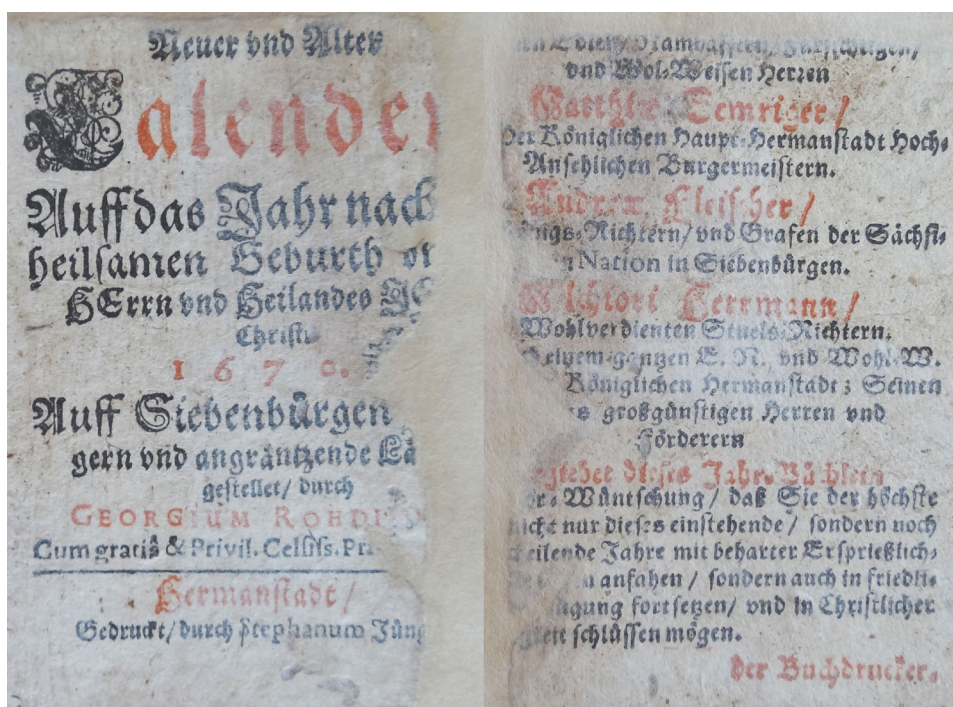 Neuer vnd Alter
Calender
Auff das Jahr nach
heilsamen Geburth
HErrn vnd Heilandes
Christi
1670.
Auff Siebenbürgen
gern vnd angräntzende
gestellet/ durch
GEORGIUM
Cum gratiâ & Privil. Celsiss.
Hermanstadt/
Gedruckt/ durch Stephanum
vnd Wol-Weisen Herren
Semriger/
Der Königlichen Haupt-Hermanstadt Hoch-
Ansehlichen Burgermeistern.
Andreæ Fleischer/
Königs-Richtern/ vnd Grafen der Sächsi-
Nation in Siebenbürgen.
Herrmann/
Wohlverdienten Stuels-Richtern.
gantzen E. R. vnd Wohl-W.
Königlichen Hermanstadt; Seinen
großgünstigen Herren vnd
Förderern
dieses Jahr-Büchlein
Wüntschung/ daß Sie der höchste
nicht nur dieses einstehende/ sondern noch
Jahre mit beharter Ersprießlich-
anfahen/ sondern auch in friedli-
fortsetzen/ vnd in Christlicher
schlüssen mögen.
der Buchdrucker.